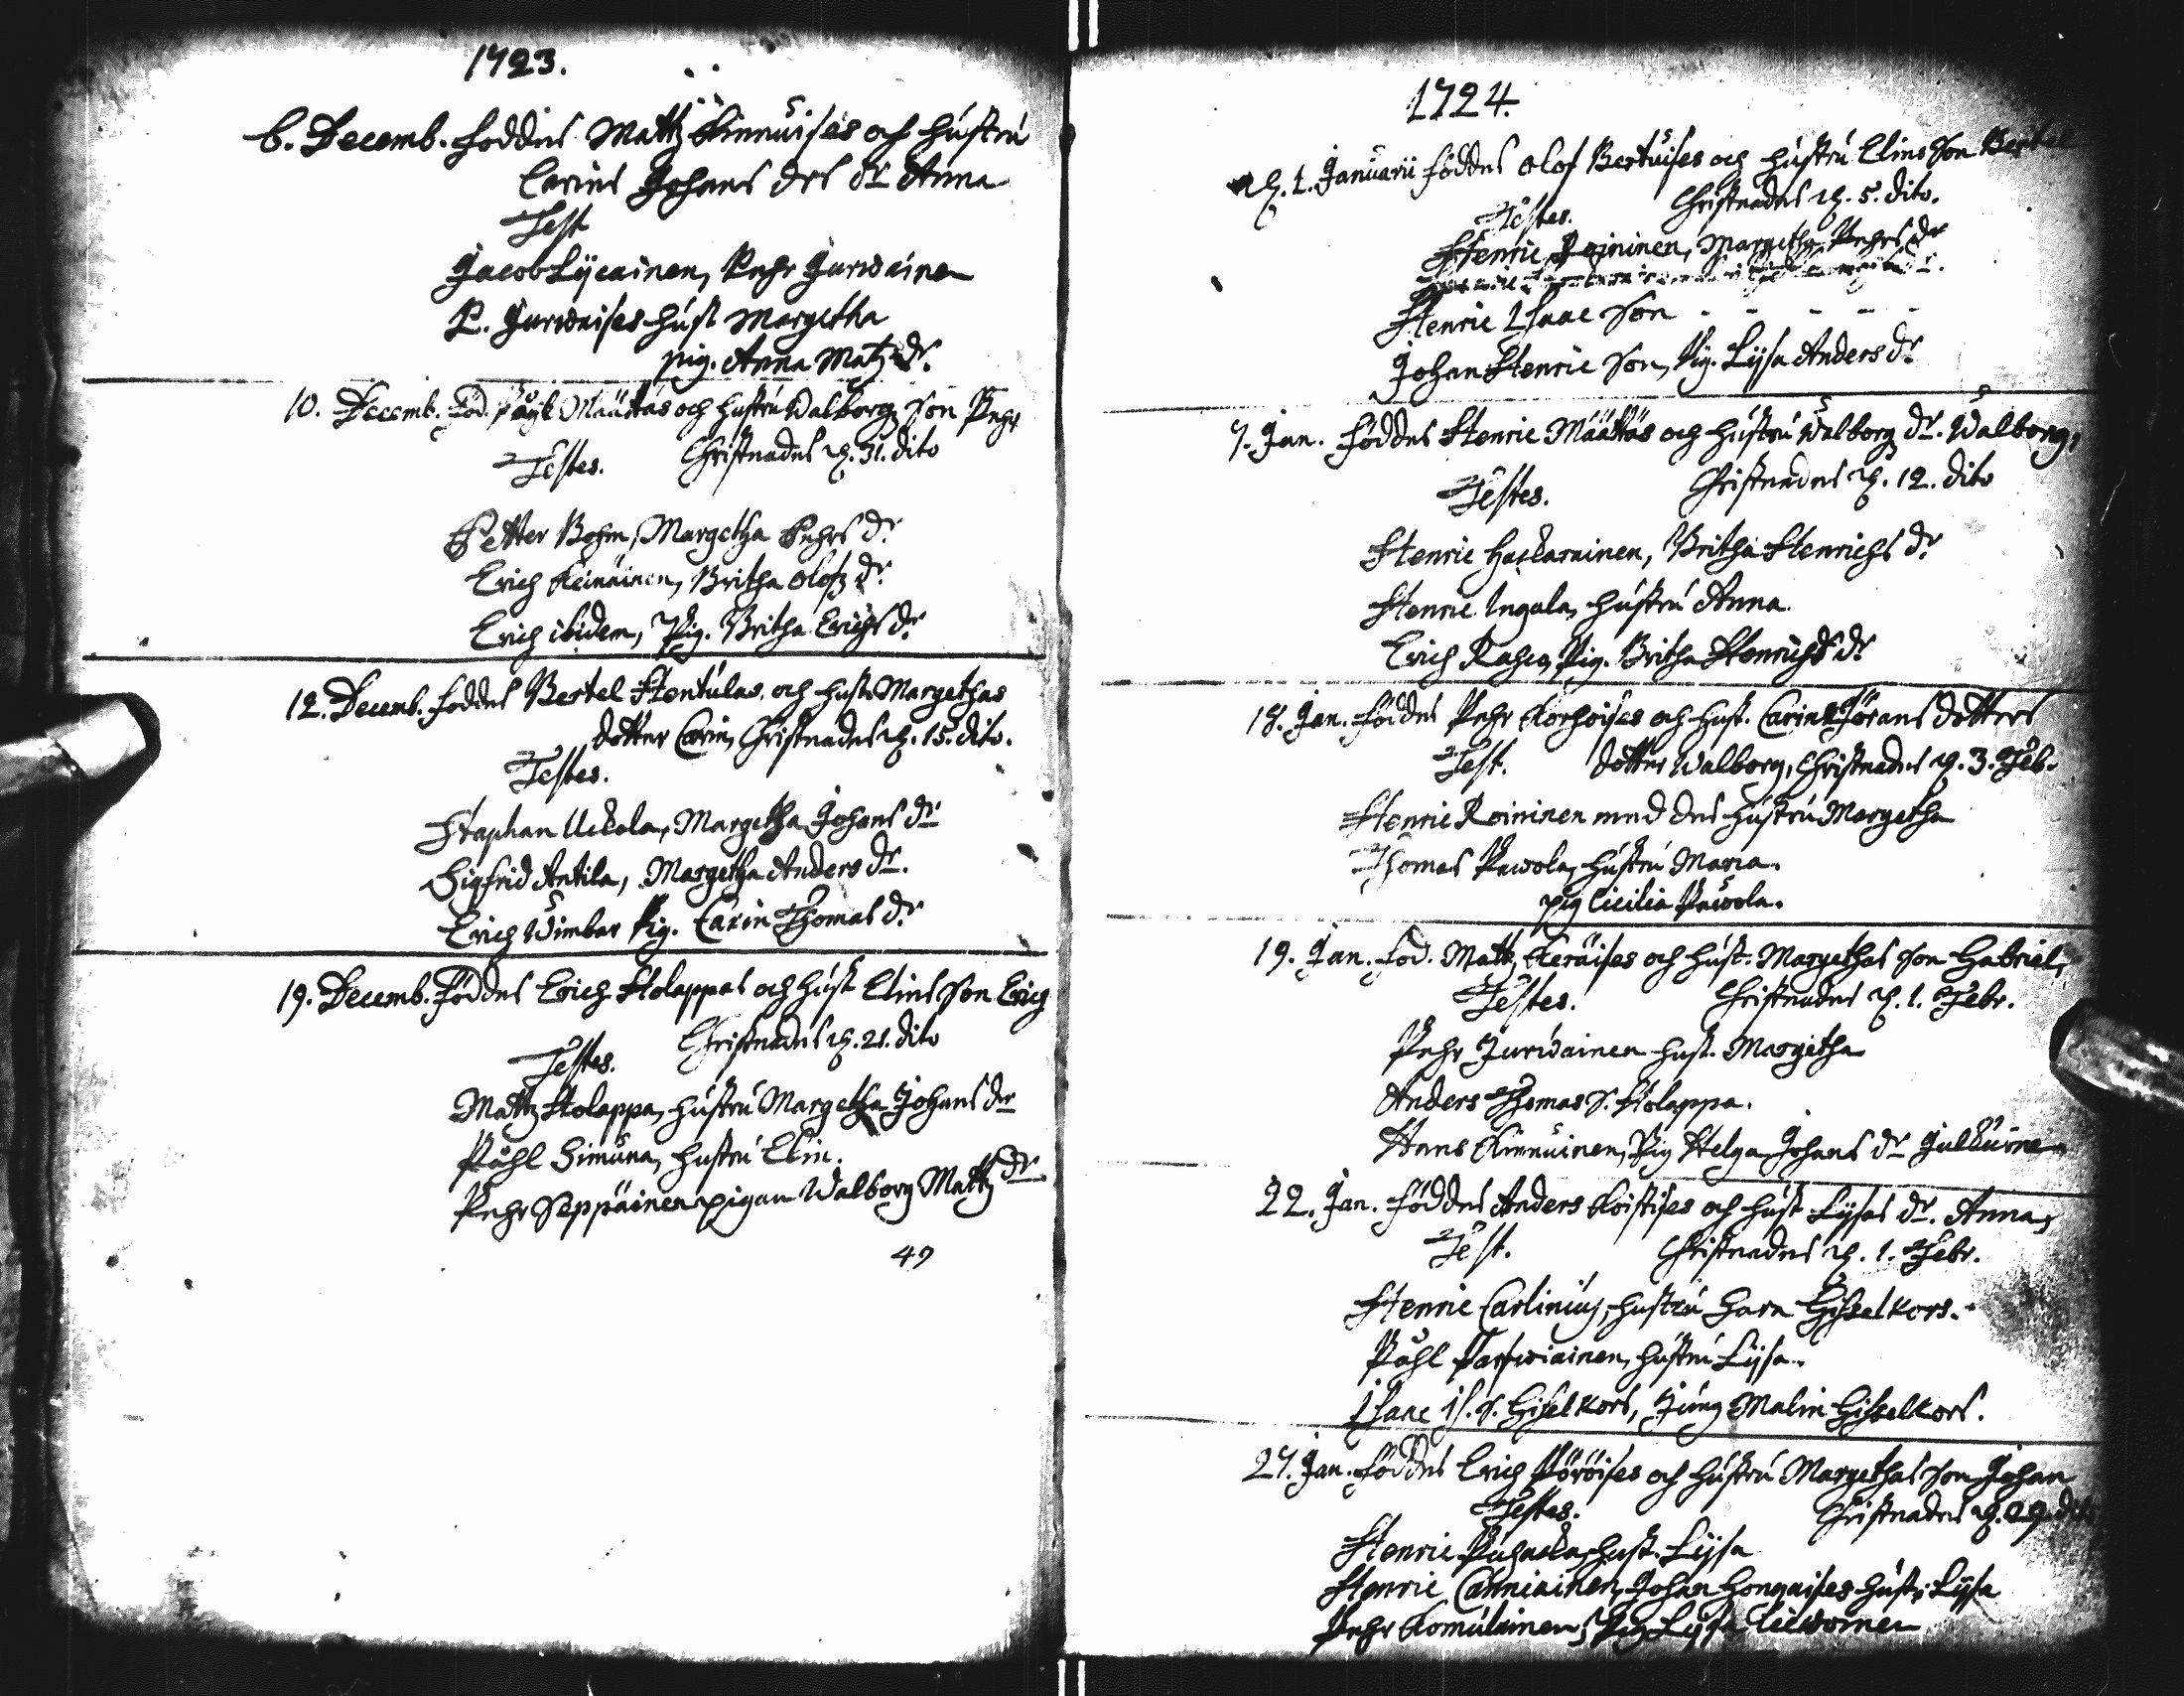 1723.
6. Decemb. föddes Mattz Kinnuises och hustru
Carins Johans drs dr Anna
Test
Jacob Lycainen, Pehr Jurwainen
P. Jurwaises hust Margetha
pig. Anna Matz dr.
10. Decemb. Föd. Påhl Määttäs och hustru Walborgz son Pehr
Testes. Christnades d. 31. dito
Petter Bohm, Margetha Pehrs dr
Erich Keinäinen, Britha Olofz dr
Erich ibidem, Pig. Britha Erichs dr
12. Decemb. föddes Bertel Hentulas och hust. Margethas
dotter Carin, Christnades d. 15. dito.
Testes.
Staphan Uckola, Margetha Johans dr
Sigfrid Antila, Margetha Anders dr.
Erich Wimbar Pig. Carin Thomas dr
19. Decemb. Föddes Erich Holappas och hust Elins son Erich
Testes. Christnades d. 21. dito
Mattz Holappa, hustru Margetha Johans dr
Påhl Simuna, hustru Elin.
Pehr Seppäinen pigan Walborg Mattz dr
49
1724.
d. 1. Januarii föddes Olof Bertuises och hustru Elins son Bertel
Testes. Christnades d. 5. dito.
Henric Roininen, Margetha Pehrs dr
Henric Isaac son - - - - -
Johan Henric son, Pig. Lysa Anders dr
7. Jan. föddes Henric Määttäs och hustru Walborg dr. Walborg,
Testes. Christnades d. 12. dito
Henric Hackarainen, Britha Henrichs dr
Henric Ingala, hustru Anna.
Erich Kaheg Pig. Britha Henrichs dr
18. Jan. föddes Pehr Korhoises och hust. Carin Jörans dotters
Test. dotter Walborg, Christnades d. 3. Feb.
Henric Roininen med des hustru Margetha
Thomas Pawola, hustru Maria.
pig Cicilia Pawola.
19. Jan. föd. Mattz Keräises och hust. Margethas son Gabriel,
Testes. Christnades d. 1. Febr.
Pehr Jurwainen hust. Margetha
Anders Thomas S. Holappa.
Hans Kinnuinen, Pig Helga Johans dr Julkuine
22. Jan. föddes Anders Koistises och hust Lysas dr. Anna,
Test. Christnades d. 1. Febr.
Henric Carlinius, hustru Sara Gisselkors.
Påhl Parfwiainen, hustru Lysa.
Isaac Is. S. Giselkors, Jung Malin Gisselkors.
27. Jan. föddes Erich Pöröises och hustru Margethas son Johan
Testes. Christnades d. 29. dito
Henric Puhacka, hust. Lysa
Henric Canniainen, Johan Hongaises hustr. Lysa
Pehr Komulainen, Pig Lysa